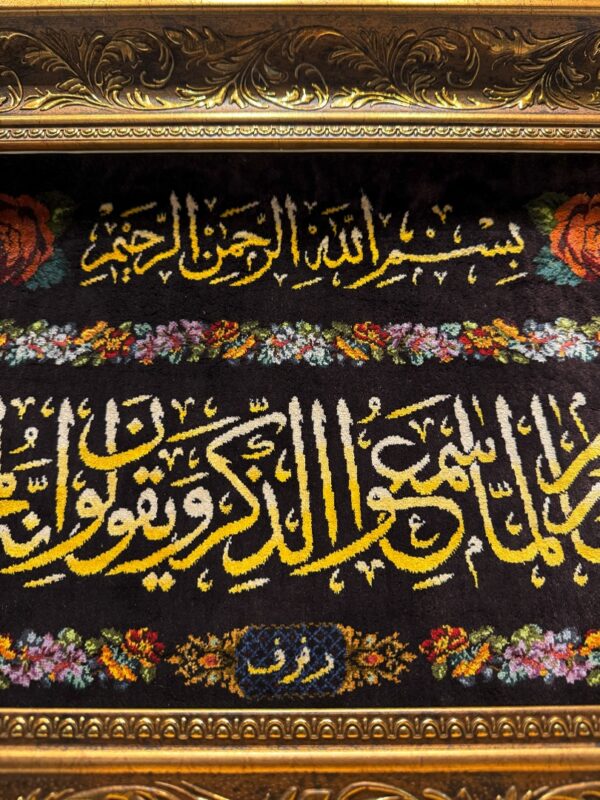 بِسْمِ اللَّهِ الرَّحْمَٰنِ الرَّحِيمِ
لَمَّا سَمِعُوا الذِّكْرَ وَيَقُولُونَ إِنَّهُ